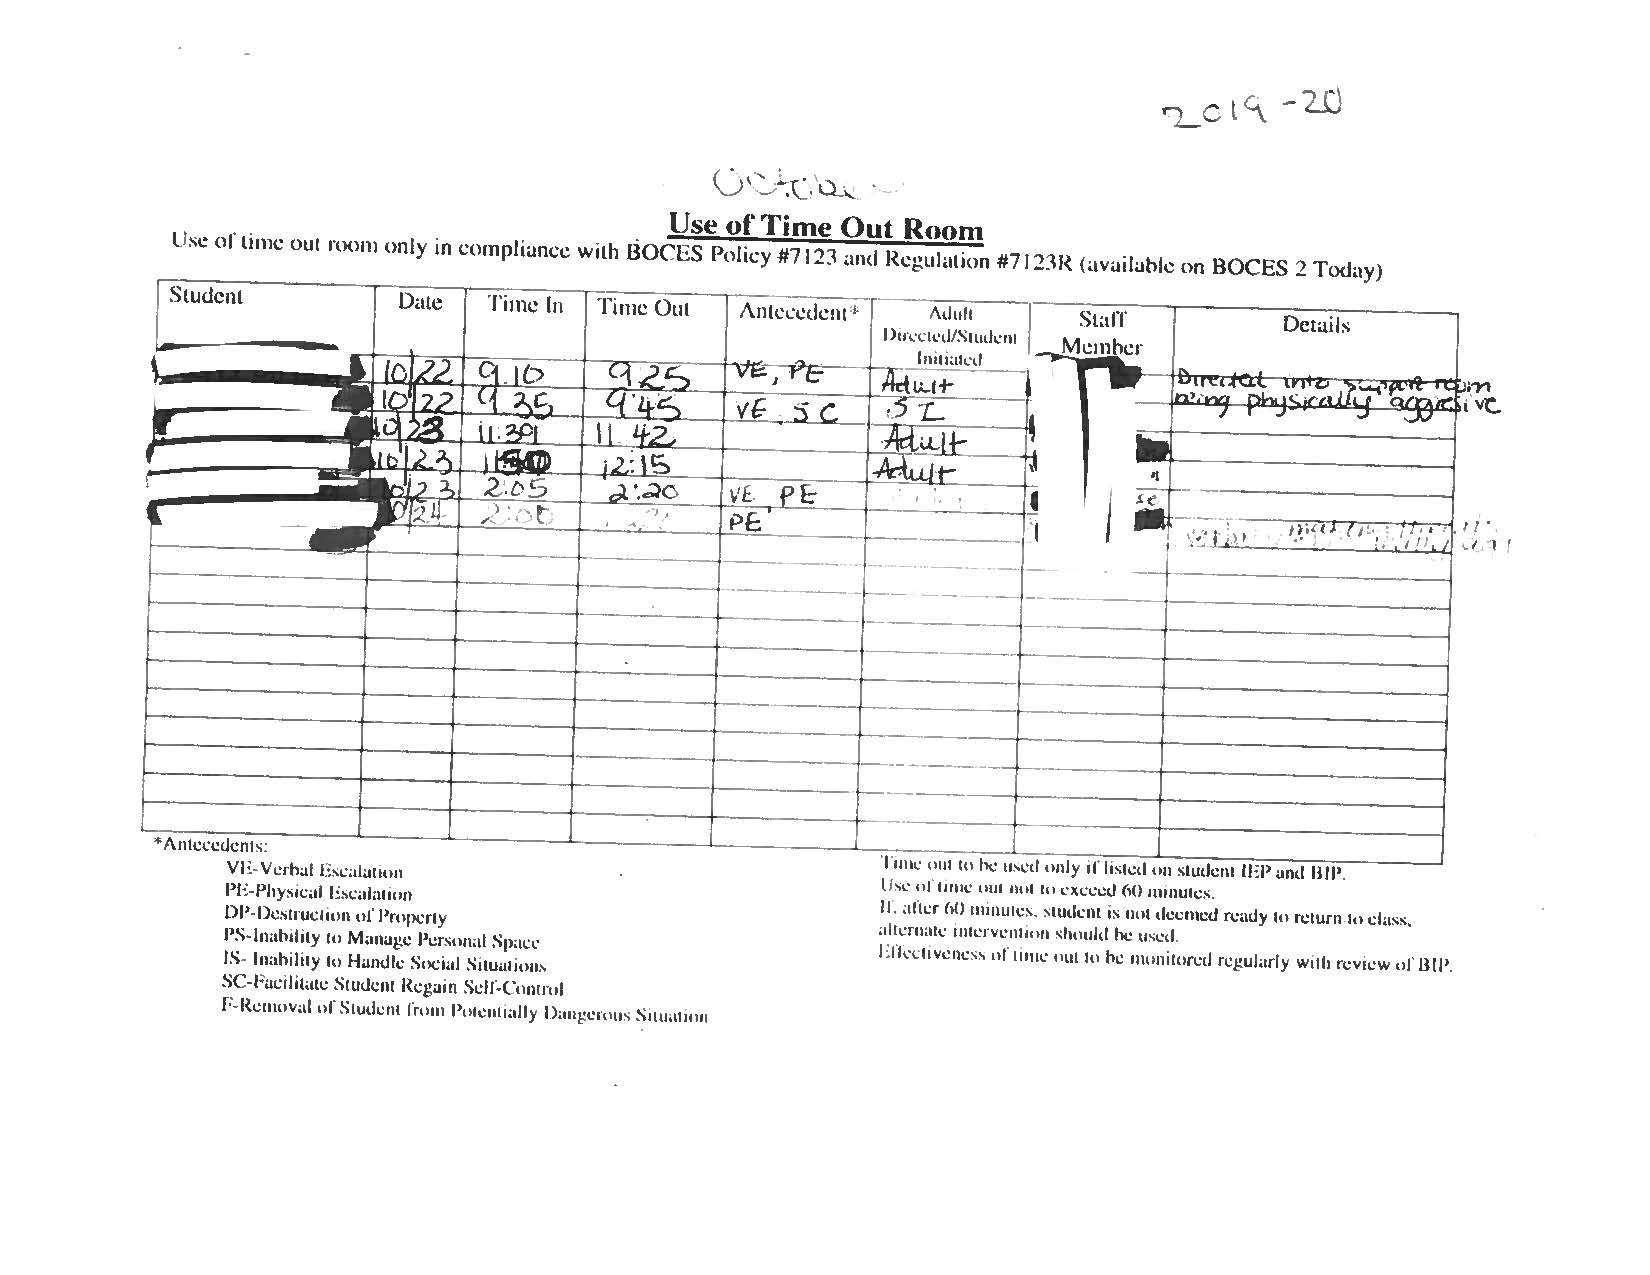 2019-20
October
Use of Time Out Room
Use of time out room only in compliance with BOCES Policy #7123 and Regulation #7123R (available on BOCES 2 Today)
Student Date Time In Time Out Antecedent* Adult Directed/Student Initiated Staff Member Details
10/22 9.10 9 25 VE, PE Adult Directed into support room
10/22 9 35 9:45 VE, SC SI being physically aggressive
10/23 11:39 11 42 Adult
10/23 12:15 Adult
10/23 2:05 2:20 VE, PE
10/24 2:00 PE
*Antecedents:
VE-Verbal Escalation
PE-Physical Escalation
DP-Destruction of Property
PS-Inability to Manage Personal Space
IS- Inability to Handle Social Situations
SC-Facilitate Student Regain Self-Control
F-Removal of Student from Potentially Dangerous Situation
Time out to be used only if listed on student IEP and BIP.
Use of time out not to exceed 60 minutes.
If, after 60 minutes, student is not deemed ready to return to class,
alternate intervention should be used.
Effectiveness of time out to be monitored regularly with review of BIP.